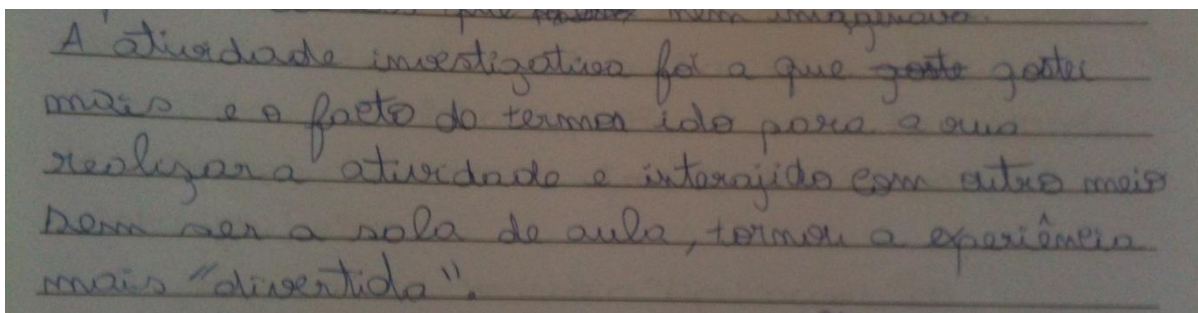 que nem imaginava.
A atividade investigativa foi a que goste gostei
mais e o facto do termos ido para a rua
realizar a atividade e interajido com outro meio
sem ser a sala de aula, tornou a experiência
mais "divertida".